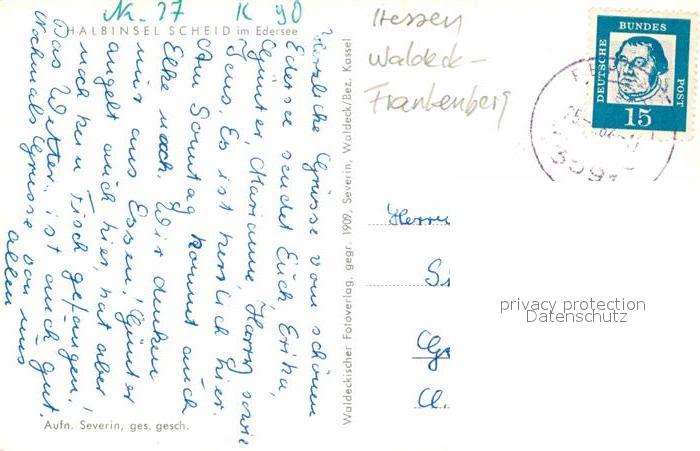 Nr. 27 K 90
HALBINSEL SCHEID im Edersee
Herzliche Grüsse vom schönen
Edersee sendet Euch Erika,
Günter, Marianne, Harry sowie
Jens. Es ist herrlich hier.
Am Sonntag kommt auch
Elke noch. Wir denken
nur ans Essen! Günter
angelt auch hier, hat aber
noch kein Fisch gefangen!
Das Wetter ist auch gut.
Nochmals Grüsse von uns
allen
Aufn. Severin, ges. gesch.
Waldeckischer Fotoverlag, gegr. 1909, Severin, Waldeck/Bez. Kassel
Hessen
Waldeck-
Frankenberg
DEUTSCHE BUNDES POST
15
Herrn
privacy protection
Datenschutz